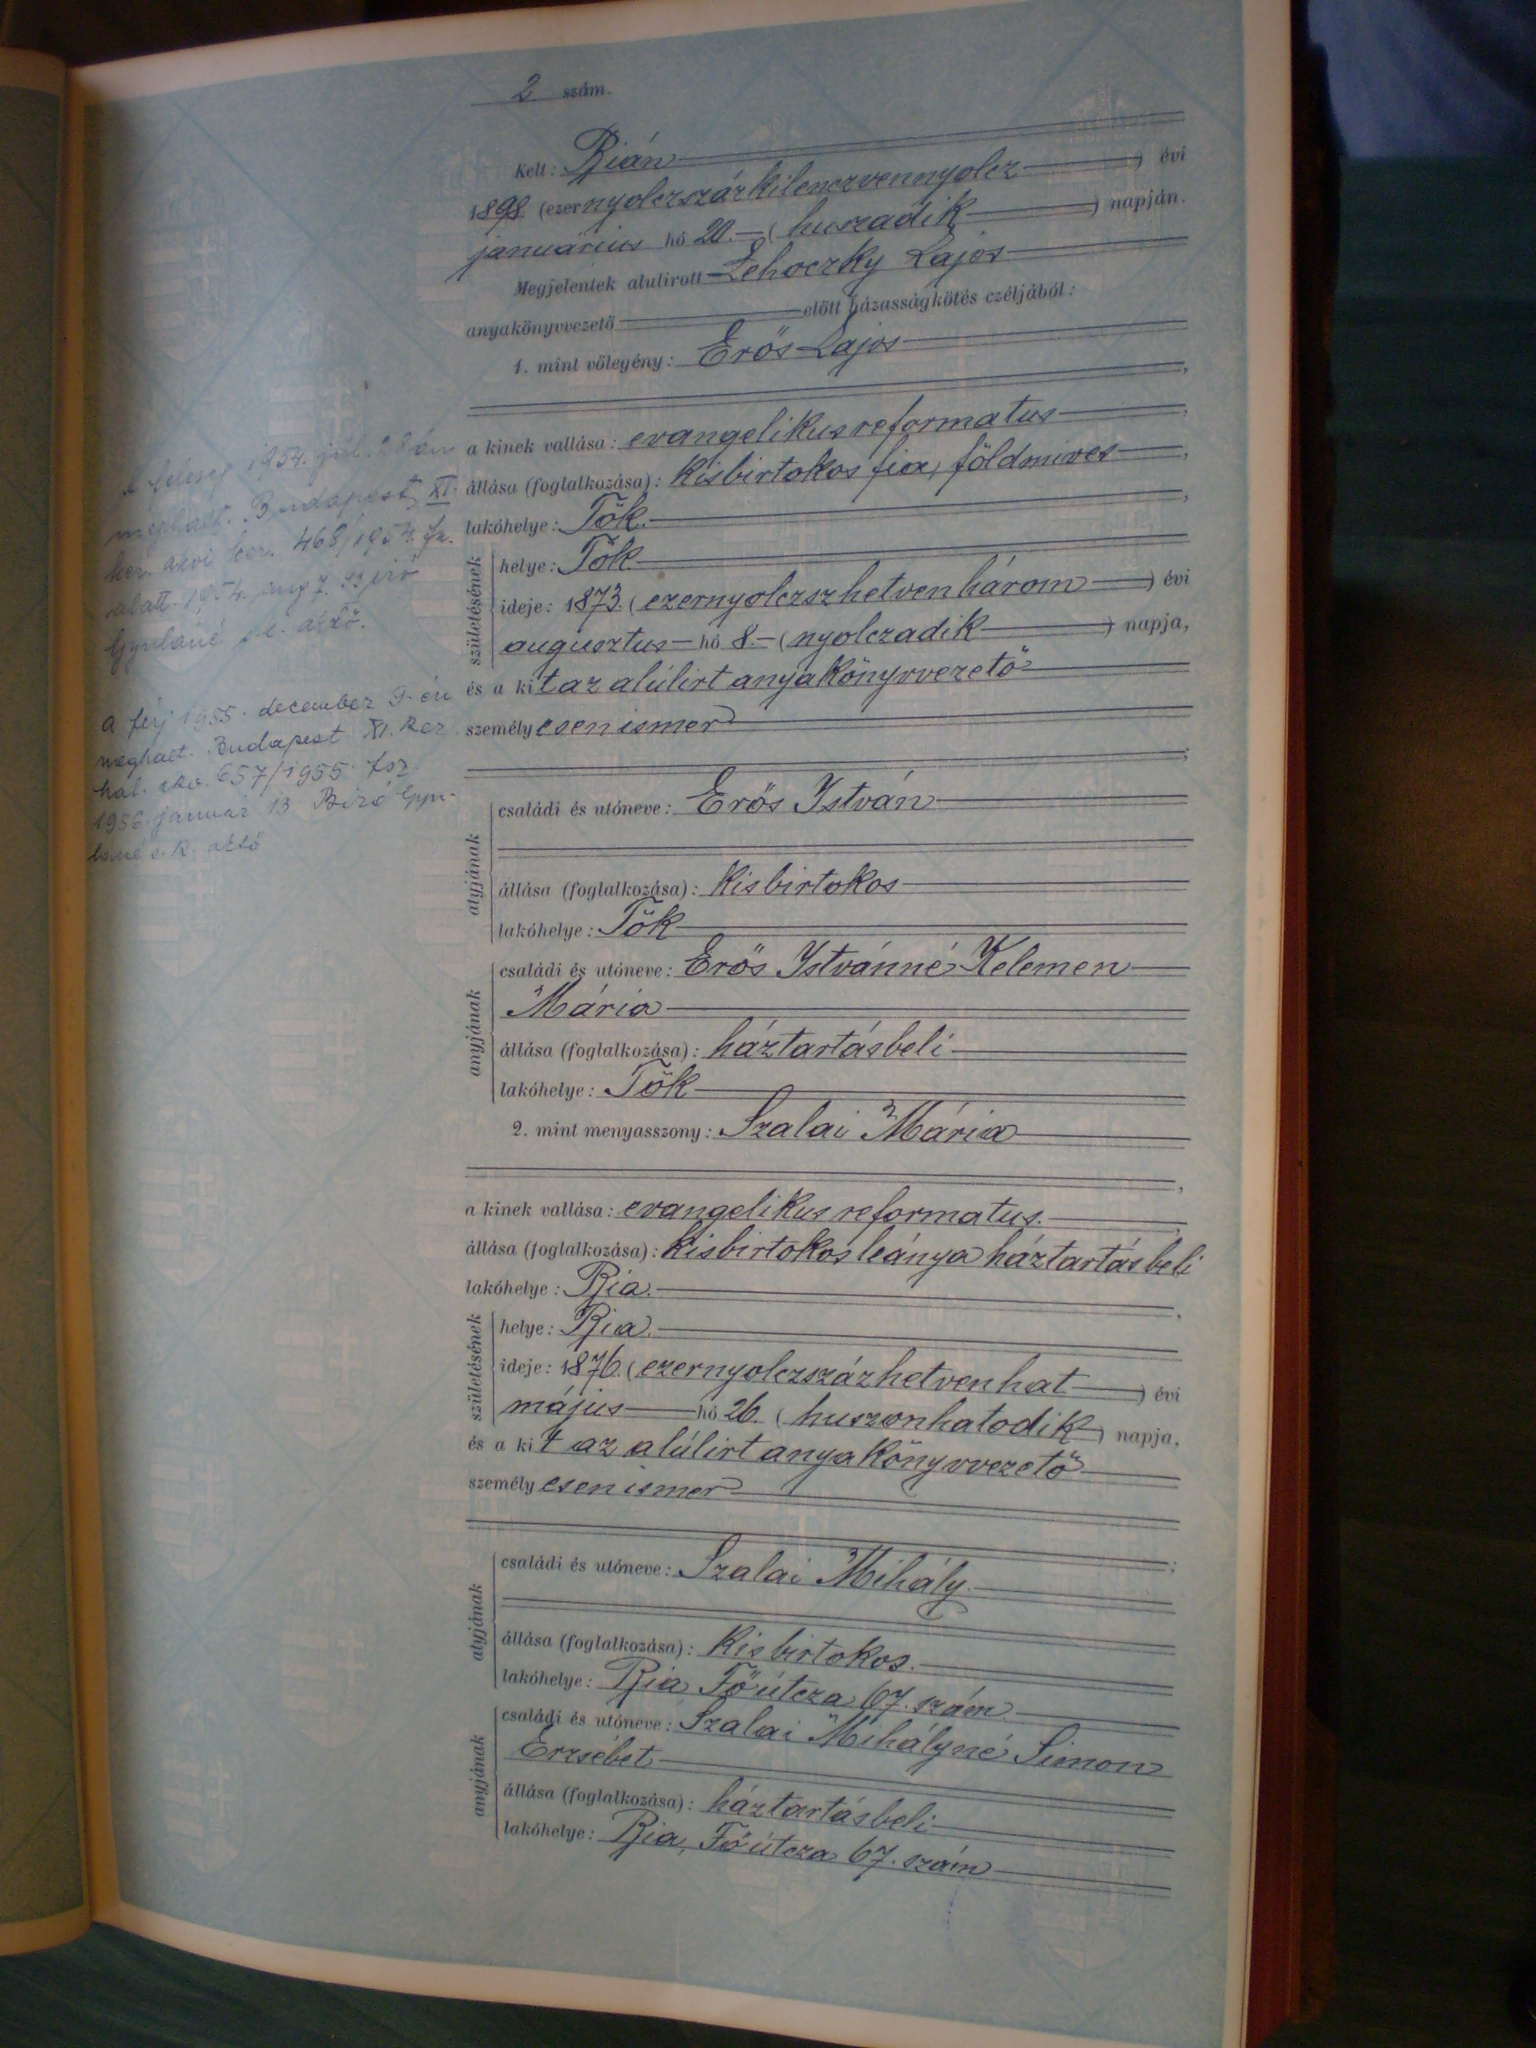 2 szám.
Kelt: Bián
1898 (ezernyolczszázkilenczvennyolcz) évi
januárius hó 20.- (huszadik) napján.
Megjelentek alulirott Lehoczky Lajos
anyakönyvvezető előtt házasságkötés czéljából:
1. mint vőlegény: Erős Lajos
a kinek vallása: evangelikus reformatus,
állása (foglalkozása): kisbirtokos fia, földmives,
lakóhelye: Tök.,
születésének
helye: Tök
ideje: 1873. (ezernyolczszhetvenhárom) évi
augusztus hó 8.- (nyolczadik) napja,
és a kit az alúlirt anyakönyvvezető
személyesen ismer
;
atyjának
családi és utóneve: Erős István
állása (foglalkozása): kisbirtokos
lakóhelye: Tök
anyjának
családi és utóneve: Erős Istvánné Kelemen
Mária
állása (foglalkozása): háztartásbeli
lakóhelye: Tök
2. mint menyasszony: Szalai Mária
,
a kinek vallása: evangelikus reformatus.,
állása (foglalkozása): kisbirtokos leánya háztartásbeli
lakóhelye: Bia.,
születésének
helye: Bia.
ideje: 1876. (ezernyolczszázhetvenhat) évi
május hó 26. (huszonhatodik) napja,
és a kit az alúlirt anyakönyvvezető
személyesen ismer
;
atyjának
családi és utóneve: Szalai Mihály.
állása (foglalkozása): kisbirtokos.
lakóhelye: Bia Főútcza 67. szám
anyjának
családi és utóneve: Szalai Mihályné Simon
Erzsébet
állása (foglalkozása): háztartásbeli
lakóhelye: Bia, Főútcza 67. szám
A feleség 1954. júl. 28án
meghalt. Budapest, XI.
ker. 468/1954. fsz.
alatt. 1954. aug 7. Biró
Gyuláné s.k.
a férj 1955. december 9-én
meghalt. Budapest XI. ker
hal. akv. 657/1955. fsz.
1956. január 13. Biró Gyu-
láné s.k.